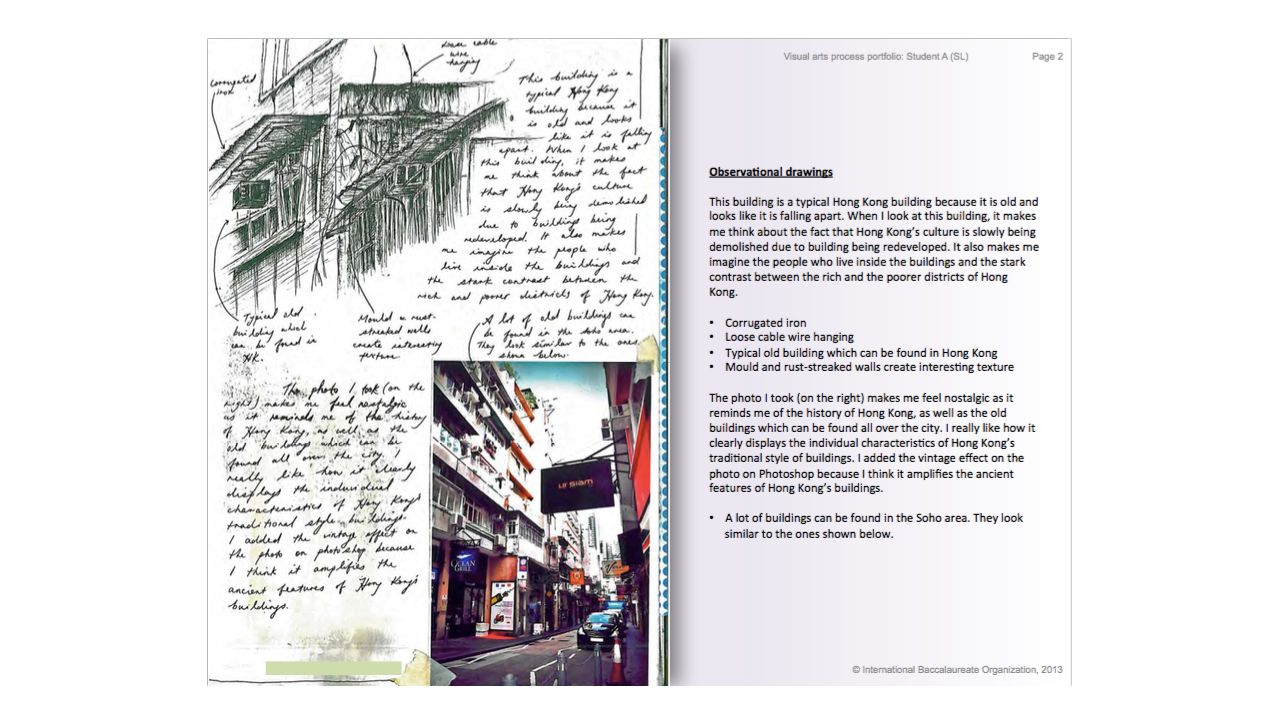 loose cable
wire
hanging
corrugated
iron
This building is a
typical Hong Kong
building because it
is old and looks
like it is falling
apart. When I look at
this building, it makes
me think about the fact
that Hong Kong's culture
is slowly being demolished
due to buildings being
redeveloped. It also makes
me imagine the people who
live inside the buildings and
the stark contrast between the
rich and poorer districts of Hong Kong.
Typical old
building which
can be found in
HK.
Mould & rust-
streaked walls
create interesting
texture
A lot of old buildings can
be found in the Soho area.
They look similar to the ones
shown below.
The photo I took (on the
right) makes me feel nostalgic
as it reminds me of the history
of Hong Kong, as well as the
old buildings which can be
found all over the city. I
really like how it clearly
displays the individual
characteristics of Hong Kong's
traditional style buildings.
I added the vintage effect on
the photo on photoshop because
I think it amplifies the
ancient features of Hong Kong's
buildings.
ur siam
OCEAN
GRILL
Visual arts process portfolio: Student A (SL) Page 2
Observational drawings
This building is a typical Hong Kong building because it is old and
looks like it is falling apart. When I look at this building, it makes
me think about the fact that Hong Kong's culture is slowly being
demolished due to building being redeveloped. It also makes me
imagine the people who live inside the buildings and the stark
contrast between the rich and the poorer districts of Hong
Kong.
• Corrugated iron
• Loose cable wire hanging
• Typical old building which can be found in Hong Kong
• Mould and rust-streaked walls create interesting texture
The photo I took (on the right) makes me feel nostalgic as it
reminds me of the history of Hong Kong, as well as the old
buildings which can be found all over the city. I really like how it
clearly displays the individual characteristics of Hong Kong's
traditional style of buildings. I added the vintage effect on the
photo on Photoshop because I think it amplifies the ancient
features of Hong Kong's buildings.
• A lot of buildings can be found in the Soho area. They look
similar to the ones shown below.
© International Baccalaureate Organization, 2013